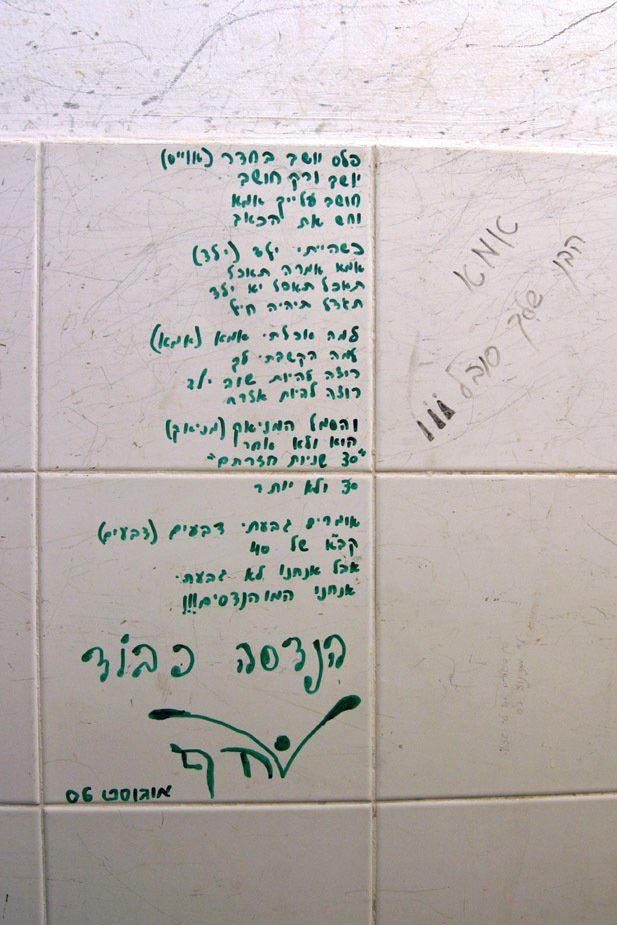 כלס יושב בחדר (אוייס)
יושב ורק חושב
חושב עלייך אמא
וחש את הכאב
כשהייתי ילד (ילד)
אמא אמרה תאכל
תאכל תאכל יא ילד
תגדל תיהיה חייל
למה אכלתי אמא (אמא)
למה הקשבתי לך
רוצה להיות שוב ילד
רוצה להיות אזרח
והסמל המניאק (מניאק)
הוא ולא אחר
"30 שניות חזרתם"
30 ולא יותר
אומרים גבעתי צבעים (צבעים)
קב"א של 40
אבל אנחנו לא גבעתי
אנחנו המהנדסים!!!
הנדסה כבוד
אוגוסט 06
אמא
הבן שלך סובל !!!